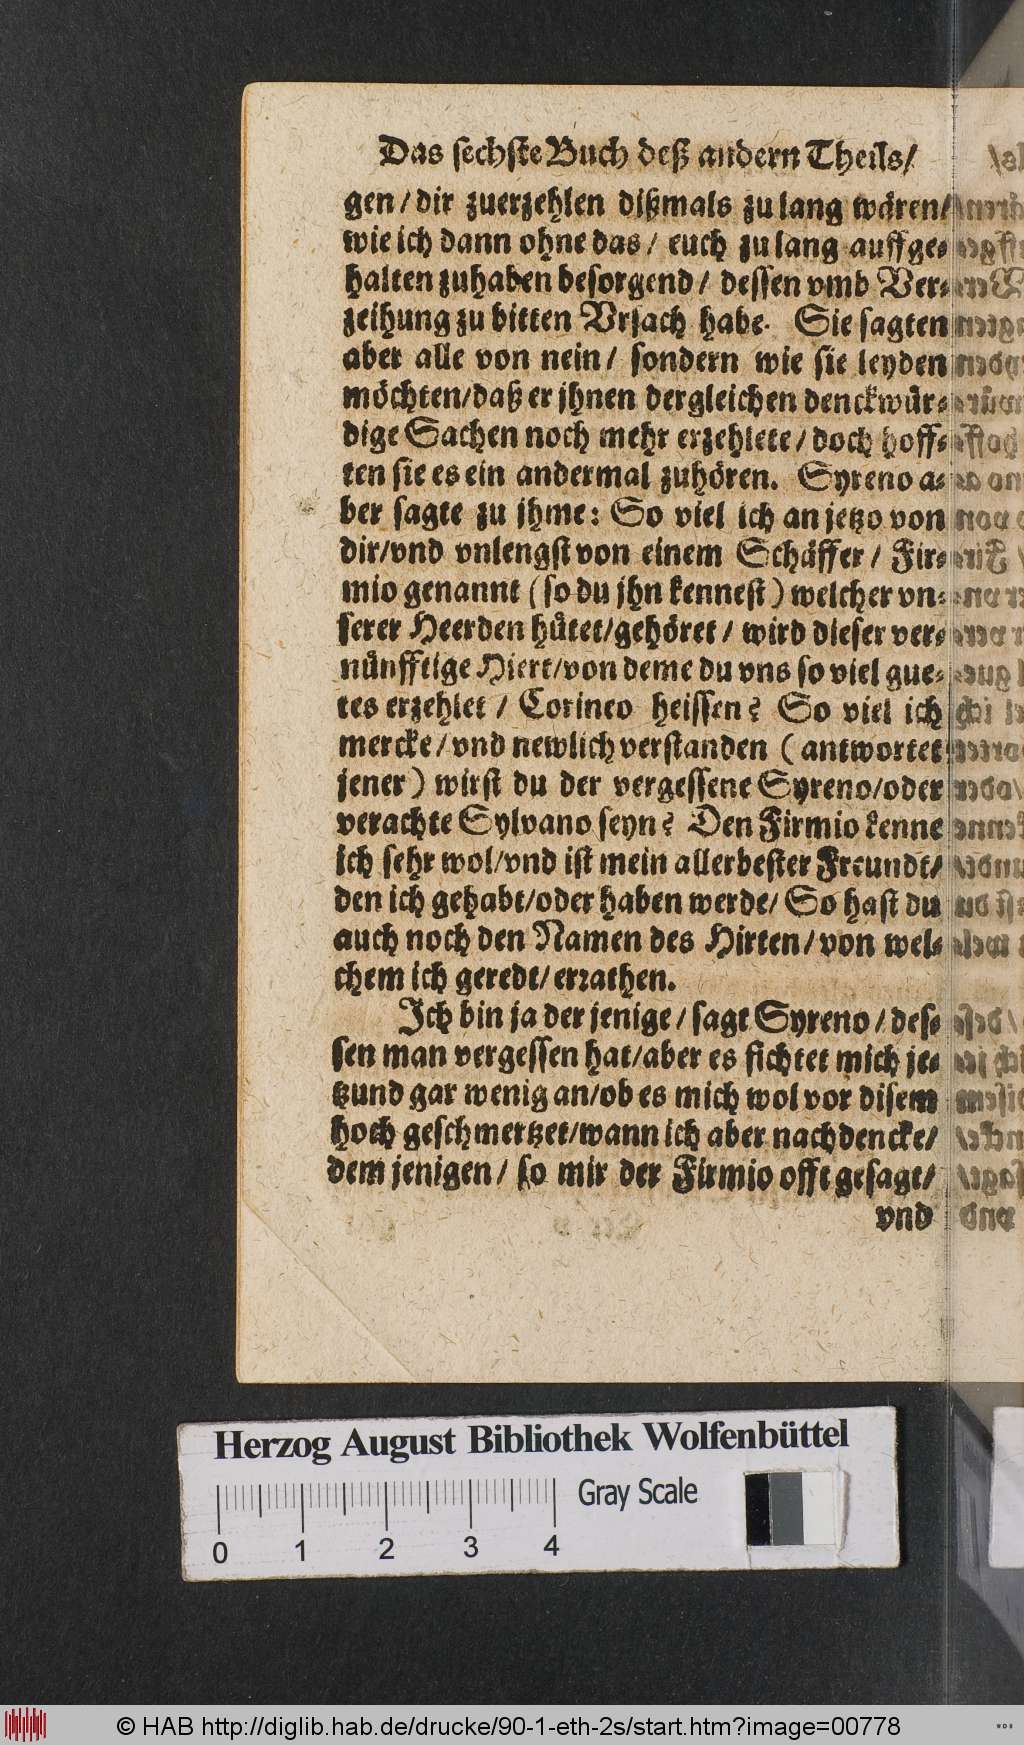 Das sechste Buch deß andern Theils/
gen/dir zuerzehlen dißmals zu lang wären/
wie ich dann ohne das/ euch zu lang auffge-
halten zuhaben besorgend/ dessen vmb Ver-
zeihung zu bitten Vrsach habe. Sie sagten
aber alle von nein/ sondern wie sie leyden
möchten/daß er jhnen dergleichen denckwür-
dige Sachen noch mehr erzehlete/doch hoff-
ten sie es ein andermal zuhören. Syreno a-
ber sagte zu jhme: So viel ich an jetzo von
dir/vnd vnlengst von einem Schäffer/ Fir-
mio genannt (so du jhn kennest) welcher vn-
serer Heerden hütet/gehöret/ wird dieser ver-
nünfftige Hiert/von deme du vns so viel gue-
tes erzehlet/ Corineo heissen? So viel ich
mercke/vnd newlich verstanden (antwortet
jener) wirst du der vergessene Syreno/oder
verachte Sylvano seyn? Den Firmio kenne
ich sehr wol/vnd ist mein allerbester Freundt/
den ich gehabt/oder haben werde/ So hast du
auch noch den Namen des Hirten/von wel-
chem ich geredt/errathen.
Ich bin ja der jenige/sagt Syreno/des-
sen man vergessen hat/aber es fichtet mich je-
tzund gar wenig an/ob es mich wol vor disem
hoch geschmertzet/wann ich aber nachdencke/
dem jenigen/ so mir der Firmio offt gesagt/
vnd
Herzog August Bibliothek Wolfenbüttel
Gray Scale
0 1 2 3 4
© HAB http://diglib.hab.de/drucke/90-1-eth-2s/start.htm?image=00778